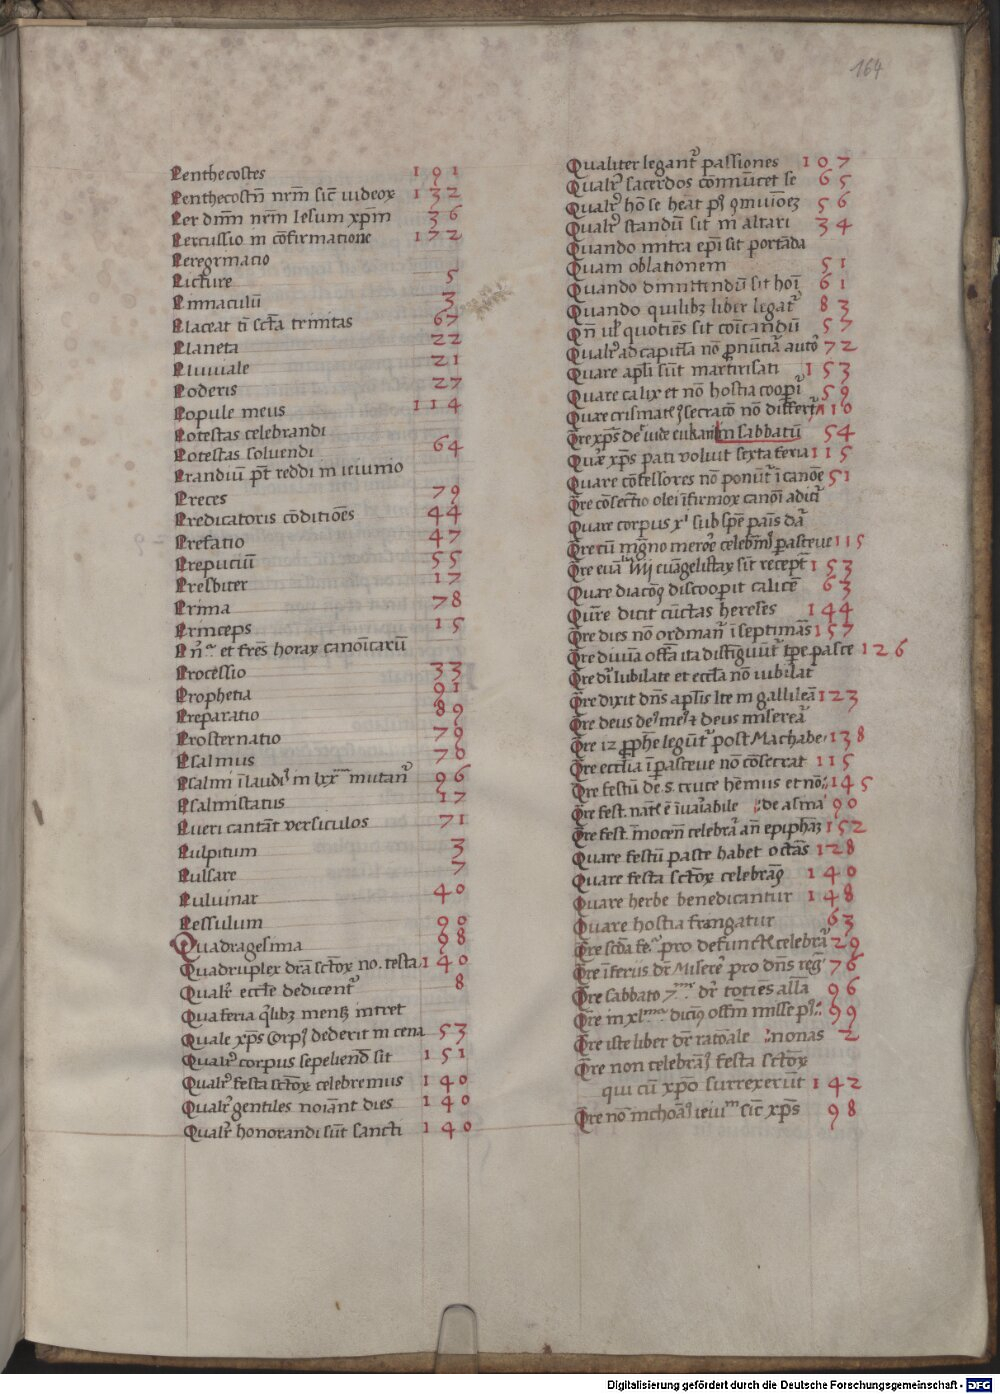 164
Penthecostes 191
Penthecostē nrm̄ sic̄ iudeoꝝ 132
Per dnm̄ nrm̄ Iesum xp̄m 36
Percussio in cōfirmatione 172
Peregrinacio
Picture 5
Pinnaculū 3
Placeat ti sctā trinitas 67
Planeta 22
Pluuiale 21
Poderis 27
Popule meus 114
Potestas celebrandi
Potestas soluendi 64
Prandiū pt̄ reddi in ieiunio
Preces 79
Predicatoris cōditiōes 44
Prefatio 47
Prepuciū 55
Presbiter 17
Prima 78
Princeps 15
et frēs horax canoicarū
Processio 33
Prophetia 91
Preparatio 89
Prosternatio 79
Psalmus 70
Psalmi ī laudi' in lxx mutanť 96
Psalmistatus 17
Pueri cantāt versiculos 71
Pulpitum 3
Pulsare 7
Puluinar 40
Pessulum 90
Quadragesima 98
Quadruplex dr̄a sctoꝝ no. festa 140
Qualr̄ eccl'e dedicenť 8
Qua feria q̄libꝫ mensꝫ intret
Quale xp̄s corpꝯ dederit in cena 53
Qualr̄ corpus sepeliend̄ sit 151
Qualr̄ festa sctoꝝ celebremus 140
Qualr̄ gentiles noiān̄t dies 140
Qualr̄ honorandi sūt sancti 140
Qualiter leganť passiones 107
Qualr̄ sacerdos cōmūicet se 65
Qualr̄ hō se heat pꝰ 56
Qualr̄ standū sit in altari 34
Quando mitra epī sit portāda
Quam oblationem 51
Quando dimittendū sit hoī 61
Quando quilibꝫ liber legať 83
Qn̄ ul' quotiēs sit cōicandū 57
Qualr̄ ad capitl'a nō ꝓnūciā autō 72
Quare apl'i sūt martirisati 153
Quare calix et nō hostia coopī 59
Quare crismatꝭ secratō nō differť 110
Qr̄e xp̄s de in sabbatū 54
Quar̄ xp̄s pati voluit sexta feria 115
Quare cōfessores nō ponūť ī canōe 51
Qr̄e cōfectio olei īfirmoꝝ canōi adicī
Quare corpus xi sub spē pais dā
Qr̄e cū mgno meroe celebm̄ꝰ pasceue 115
Qr̄e euā IIII euāgelistaꝝ sūt recepť 153
Quare diacōꝰ discoopit calicē 63
Qur̄e dicit cūctas hereses 144
Qr̄e dies nō ordinanť ī septimās 157
Qr̄e diuīa offa ita distīguūť tpe pasce 126
Qr̄e dī Iubilate et eccl'a nō iubilat
Qr̄e dixit dn̄s apl'is Ite in gallileā 123
Qr̄e deus deꝰ meꝰ ⁊ deus misereā
Qr̄e 12 ꝓphe legūť post Machabe 138
Qr̄e eccl'ia ī pasceue nō cōsecrat 115
Qr̄e festū de S. cruce hēmus et nō 145
Qr̄e fest. nat' ē īuaiabile de as̄ma 90
Qr̄e fest. inocen̄ celebrā an̄ epiphāꝫ 152
Quare festū pasce habet octās 128
Quare festa sctoꝝ celebrāꝰ 140
Quare herbe benedicantur 148
Quare hostia frangatur 63
Qr̄e scđa fe. pro defunctis celebrā 29
Qr̄e ī feriis dr̄ Miserē pro dn̄s regꝰ 76
Qr̄e sabbato 7 dr̄ totiēs all'a 96
Qr̄e in xl diciꝰ offm̄ misse pꝰ 99
Qr̄e iste liber dr̄ ratōale nonas 2
Qr̄e non celebrāꝰ festa sctoꝝ
qui cū xp̄o surrexerūt 142
Qr̄e nō inchoāꝰ ieiu sic̄ xp̄s 98
Digitalisierung gefördert durch die Deutsche Forschungsgemeinschaft - DFG